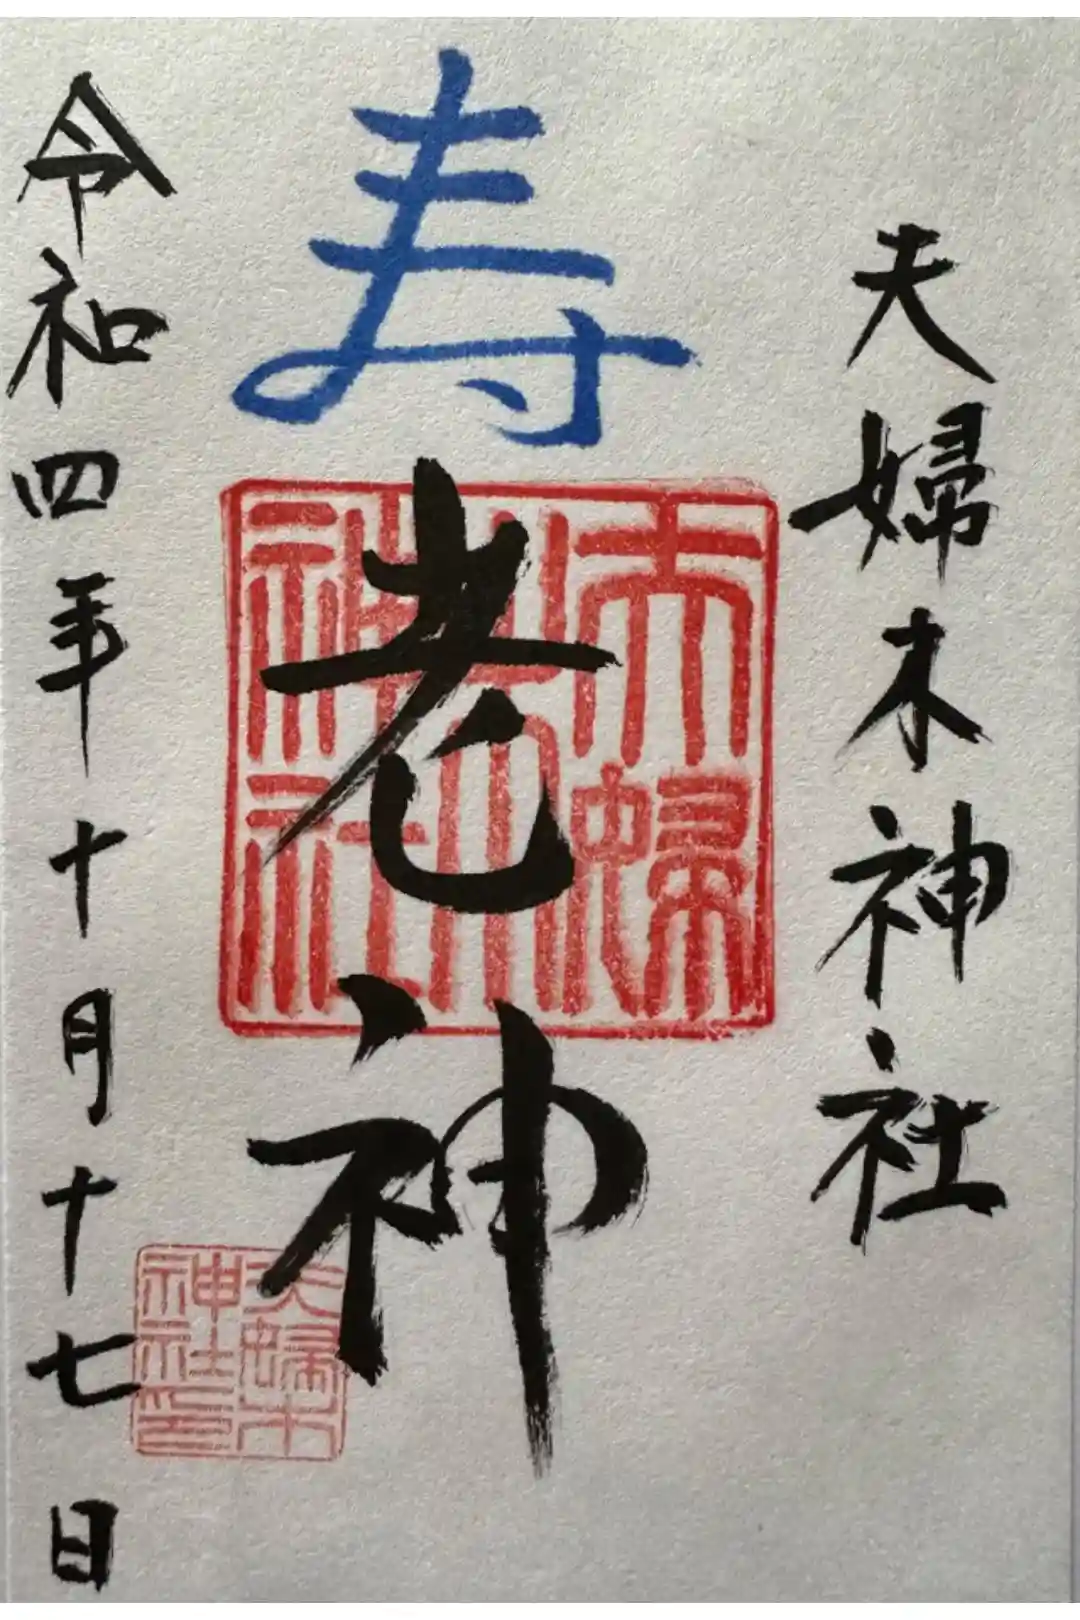 夫婦木神社
寿
老神
令和四年十月十七日
夫婦木
神社
夫婦木
神社印